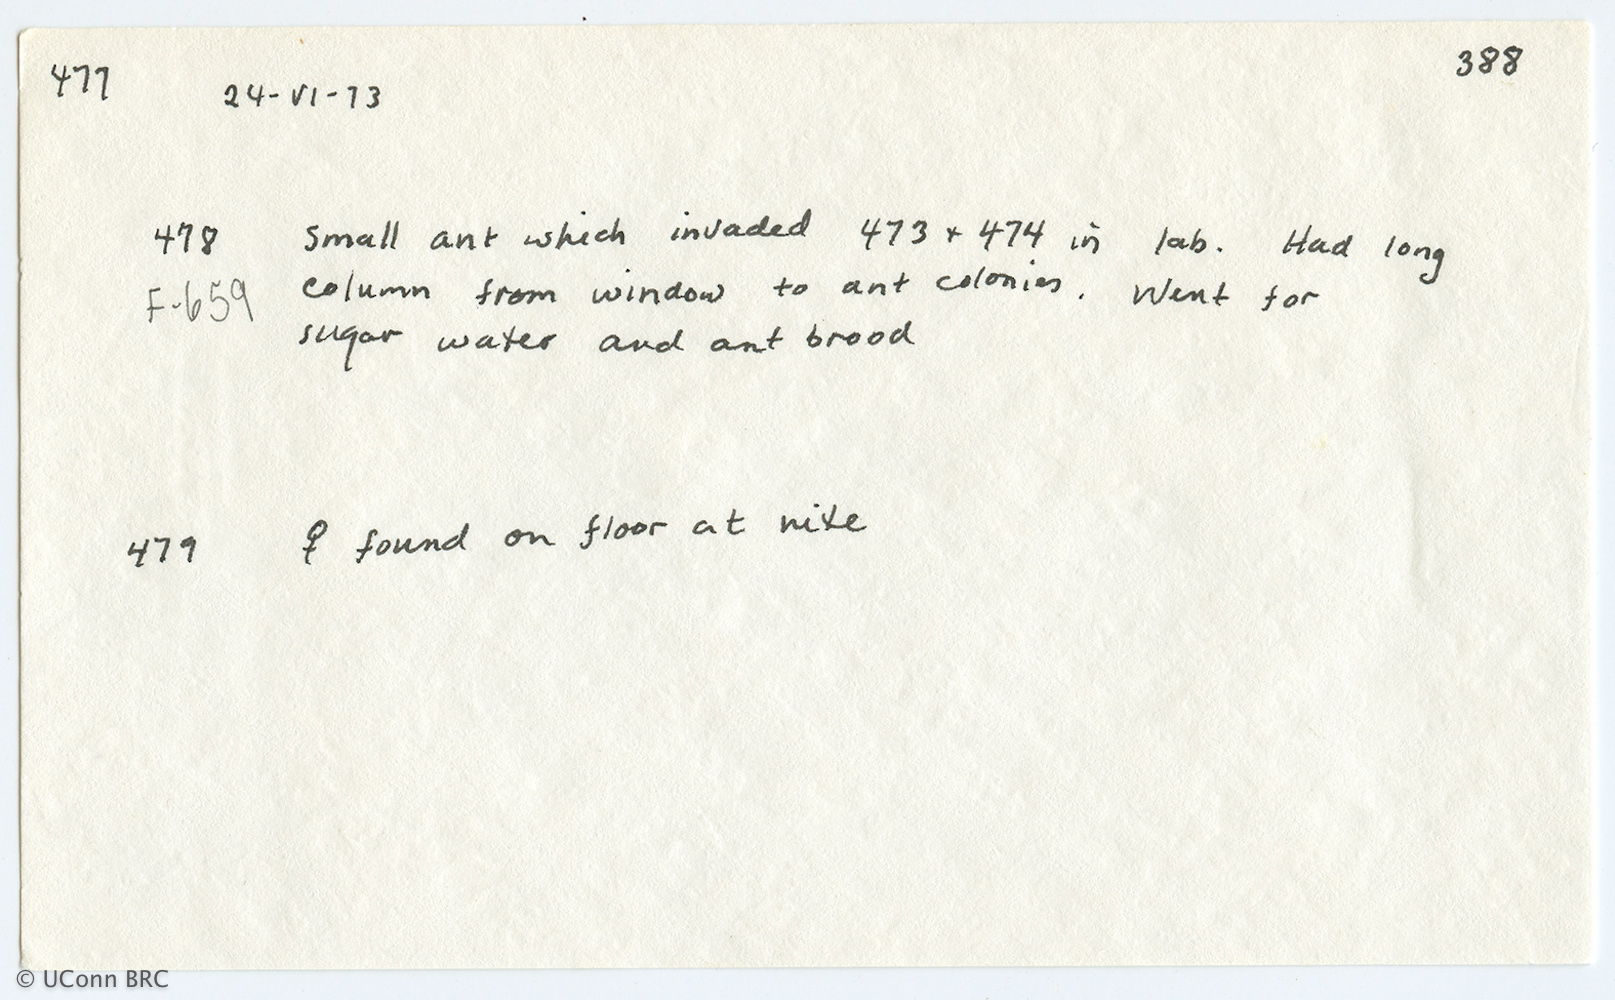 477
388
24-VI-73
478 Small ant which invaded 473 + 474 in lab. Had long
F-659 column from window to ant colonies. Went for
sugar water and ant brood
479 ♀ found on floor at nite
© UConn BRC